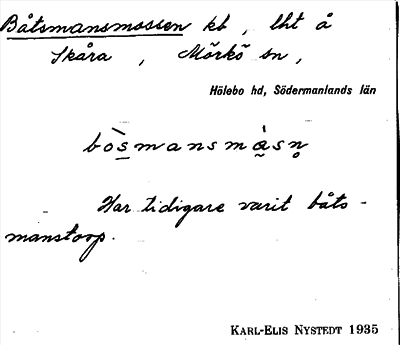 Båtsmansmossen kb, lht å
Skåra, Mörkö sn,
Hölebo hd, Södermanlands län
bòs̲mansmàsn̥
Har tidigare varit båts-
manstorp.
KARL-ELIS NYSTEDT 1935